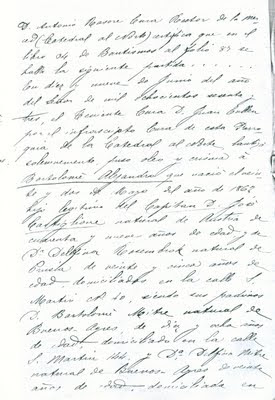 D. Antonio Rasore Cura Rector de la Mer
ced (Catedral al Norte) certifica que en el
libro 34 de Bautismos al folio 33 se
halla la siguiente partida......
En diez y nueve de Junio del año
del Señor de mil ochocientos sesenta y
tres, el Teniente Cura D. Juan
por el infrascripto Cura de esta Parro
quia de la Catedral al Norte bautizó
solemnemente puso oleo y crisma á
Bartolomé Alejandro que nació el vein
te y dos de Mayo del año de 1862
hijo legítimo del Capitan D. José
Castiglione natural de Austria de
cuarenta y nueve años de edad y de
Da Delfina natural de
Prusia de veinte y cinco años de
edad domiciliados en la calle S.
Martin siendo sus padrinos
D. Bartolomé Mitre natural de
Buenos Ayres, de diez y ocho años
de edad, domiciliado en la calle
S. Martin 144, y Da Delfina Mitre
natural de Buenos Ayres de siete
años de edad, domiciliada en